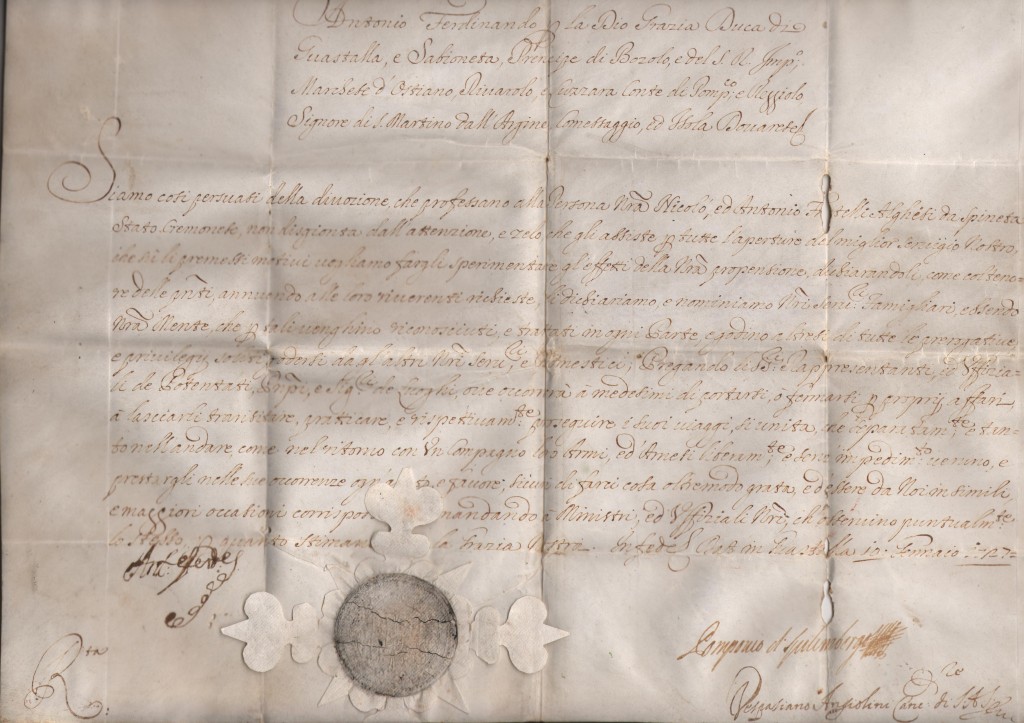 Antonio Ferdinando p la Dio Grazia Duca di
Guastalla, e Sabioneta, Prencipe di Bozolo, e del S. R. Imp:
Marchese d'Ostiano, Rivarolo, e Luzzara Conte di Pomp:co e Reggiolo
Signore di S. Martino dall'Argine, Comessaggio, ed Isola Dovarese
Siamo così persuasi della divozione, che professano alla Persona Nrã Nicolò, ed Antonio Fratelli Alghisi da Spineta
Stato Cremonese, non disgionta dall'attenzione, e zelo, che gli assiste p tutte l'aperture del miglior servigio Nostro,
che sù li premessi motivi vogliamo fargli sperimentare gl'effetti della Nrã propensione, dichiarandoli, come col teno-
re delle pñti, annuendo alle loro riverenti richieste, li dichiariamo, e nominiamo Nři Serv: Famigliari, essendo
Nrã Mente, che p tali venghino riconosciuti, e trattati in ogni Parte, e godino altresi di tutte le prerogative,
e privilegij, soliti godersi da gl'altri Nři Serv: e Domestici; Pregando li SS:ri Rappresentanti, ed Uffizia-
li de Potentati, Prñpi, e Sig:ri de Luoghi, ove occorrerà à medesimi di portarsi, o fermarsi p proprij affari
à lasciarli transitare, praticare, e rispettivam:te proseguire i suoi viaggi, sì unita, che separatam:te, e tan-
to nell'andare, come nel ritorno con Un Compagno loro Armi, ed Arnesi liberam:te, e senza impedim:to veruno, e
prestargli nelle sue occorrenze ogn' e favore; sicuri di farci cosa oltremodo grata, e d'essere da Noi in simili,
e maggiori occasioni mandando à Ministri, ed Uffiziali Nři, ch'osservino puntualm:te
lo stesso, p quanto stimano la Grazia Nostra. In fede Dat: in Guastalla 10. Genaro 1727
Ant:
R:ta
Vespasiano Ansiolini Canc:re di S. A. Ser: